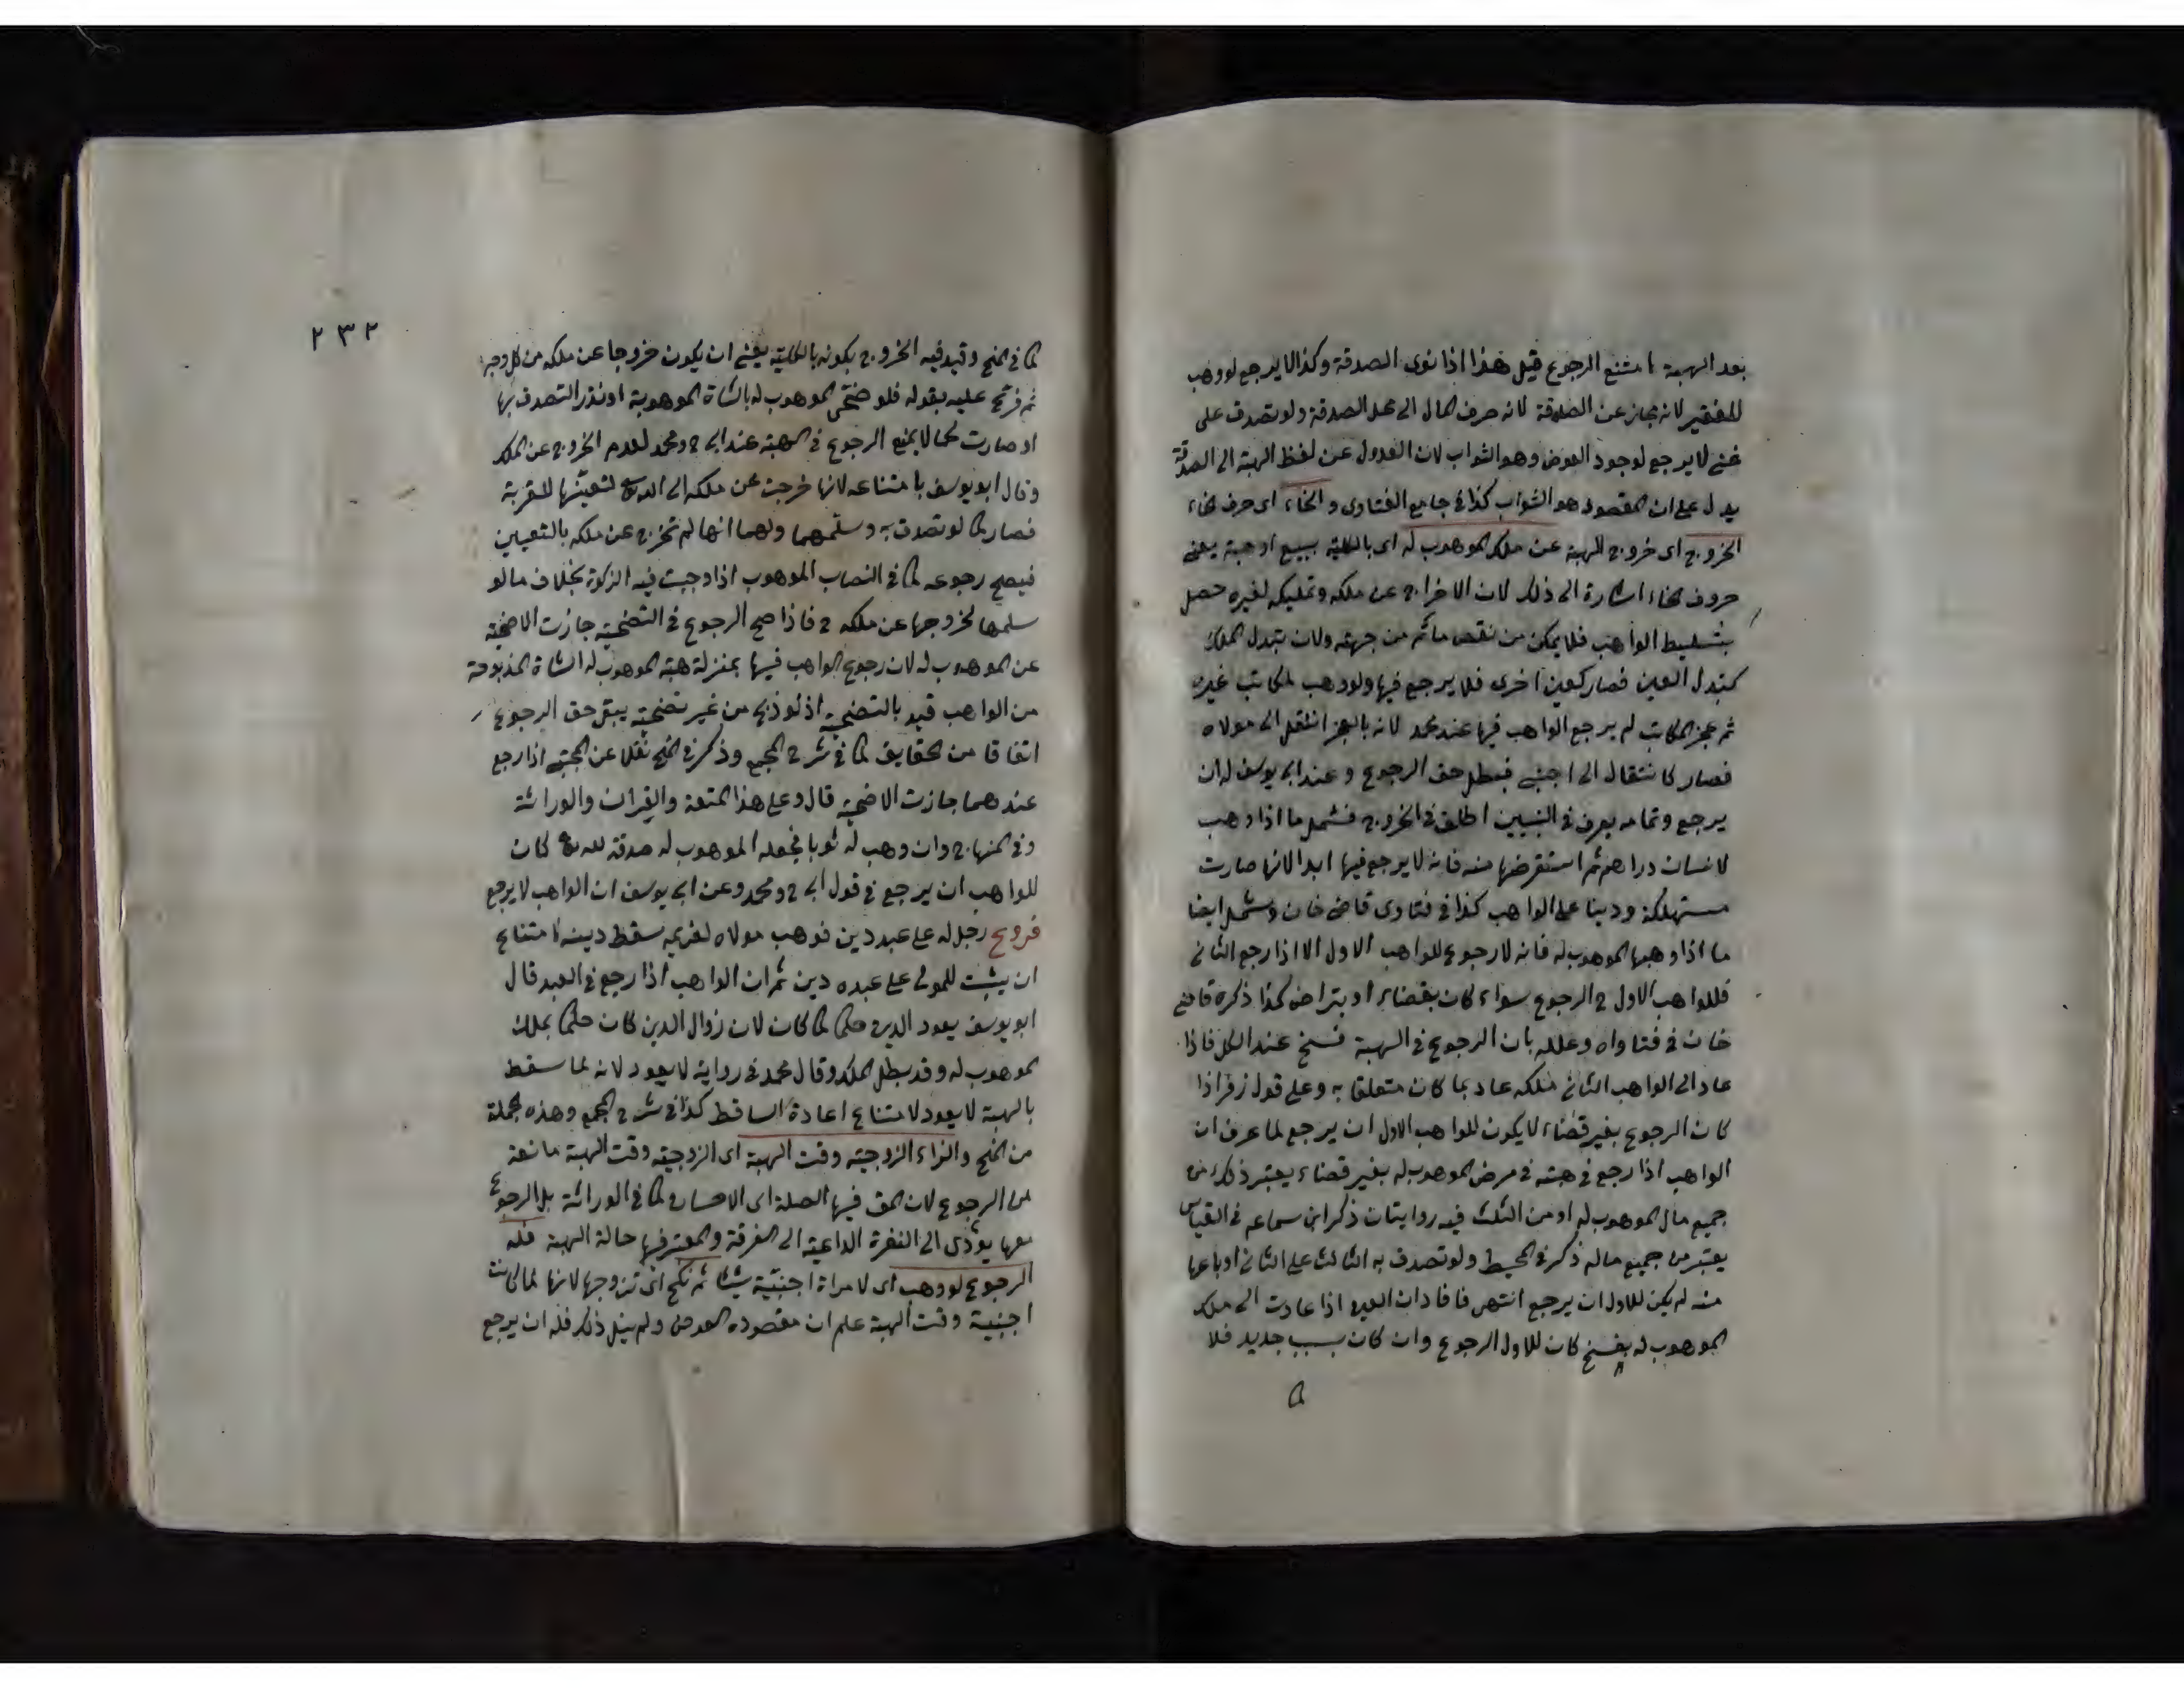 بعد الهبة امتنع الرجوع قيل هذا اذا نوى الصدقة وكذا لا يرجع لو وهب
للفقير لانه مجاز عن الصدقة لانه صرف المال الى محل الصدقة ولو تصدق على
غنى لا يرجع لوجود العوض وهو الثواب لان العدول عن لفظ الهبة الى الصدقة
يدل على ان المقصود هو الثواب كذا فى جامع الفتاوى و الخاء اى حرف الخاء
الخروج اى خروج الهبة عن ملك الموهوب له اى بالكلية ببيع او هبة يعنى
حروف الخاء اشارة الى ذلك لان الاخراج عن ملكه وتمليكه لغيره حصل
بتسليط الواهب فلا يمكن من نقض ما تم من جهته ولان تبدل الملك
كتبدل العين فصار كعين اخرى فلا يرجع فيها ولو وهب لمكاتب غيره
ثم عجز المكاتب لم يرجع الواهب فيها عند محمد لانه بالعجز انتقل الى مولاه
فصار كانتقال الى اجنبى فبطل حق الرجوع وعند ابى يوسف له ان
يرجع وتمامه يعرف فى التبيين اطلق فى الخروج فشمل ما اذا وهب
لانسان دراهم ثم استقرضها منه فانه لا يرجع فيها ابدا لانها صارت
مستهلكة ودينا على الواهب كذا فى فتاوى قاضى خان وشمل ايضا
ما اذا وهبها الموهوب له فانه لا رجوع للواهب الاول الا اذا رجع الثانى
فللواهب الاول ح الرجوع سواء كان بقضاء او بتراض كذا ذكره قاضى
خان فى فتاواه وعلله بان الرجوع فى الهبة فسخ عند الكل فاذا
عاد الى الواهب الثانى ملكه عاد بما كان متعلقا به وعلى قول زفر اذا
كان الرجوع بغير قضاء لا يكون للواهب الاول ان يرجع لما عرف ان
الواهب اذا رجع فى هبته فى مرض الموهوب له بغير قضاء يعتبر ذلك من
جميع مال الموهوب له او من الثلث فيه روايتان ذكر ابن سماعه فى القياس
يعتبر من جميع ماله ذكره فى المحيط ولو تصدق به الثالث على الثانى او باعها
منه لم يكن للاول ان يرجع انتهى فافاد ان العين اذا عادت الى ملك
الموهوب له بفسخ كان للاول الرجوع وان كان بسبب جديد فلا
كما
٢٣٢
كما فى المنح وقيد فيه الخروج بكونه بالكلية يعنى ان يكون خروجا عن ملكه من كل وجه
ثم فرع عليه بقوله فلو ضحى الموهوب له بالشاة الموهوبة او نذر التصدق بها
او صارت لحما لا يمنع الرجوع فى الهبة عند ابى ح ومحمد لعدم الخروج عن الملك
وقال ابو يوسف بامتناعه لانها خرجت عن ملكه الى الله تع لتعينها للقربة
فصار كما لو تصدق به وسلمهما ولهما انها لم تخرج عن ملكه بالتعيين
فيصح رجوعه كما فى النصاب الموهوب اذا وجبت فيه الزكوة بخلاف ما لو
سلمها لخروجها عن ملكه ح فاذا صح الرجوع فى التضحية جازت الاضحية
عن الموهوب له لان رجوع الواهب فيها بمنزلة هبة الموهوب له الشاة المذبوحة
من الواهب قيد بالتضحية اذ لو ذبح من غير تضحية يبقى حق الرجوع
اتفاقا من الحقايق كما فى شرح المجمع وذكر فى المنح نقلا عن المجتبى اذا رجع
عندهما جازت الاضحية قال وعلى هذا المتعة والقران والوراثة
وفى المنهاج وان وهب له ثوبا فجعله الموهوب له صدقة لله تع كان
للواهب ان يرجع فى قول ابى ح ومحمد وعن ابى يوسف ان الواهب لا يرجع
فروع رجل له على عبد دين فوهب مولاه لغريمه سقط دينه لامتناع
ان يثبت للمولى على عبده دين ثم ان الواهب اذا رجع فى العبد قال
ابو يوسف يعود الدين حكما كما كان لان زوال الدين كان حكما بملك
الموهوب له وقد بطل الملك وقال محمد فى رواية لا يعود لانه لما سقط
بالهبة لا يعود لامتناع اعادة الساقط كذا فى شرح المجمع وهذه الجملة
من المنح والزاء الزوجية وقت الهبة اى الزوجية وقت الهبة مانعة
من الرجوع لان المق فيها الصلة اى الاحسان كما فى الوراثة بل الرجوع
معها يؤدى الى النفرة الداعية الى الفرقة والمعتبر فيها حالة الهبة فله
الرجوع لو وهب اى لامراة اجنبية شيئا ثم نكح اى تزوجها لانها لما كانت
اجنبية وقت الهبة علم ان مقصوده العوض ولم ينل ذلك فله ان يرجع